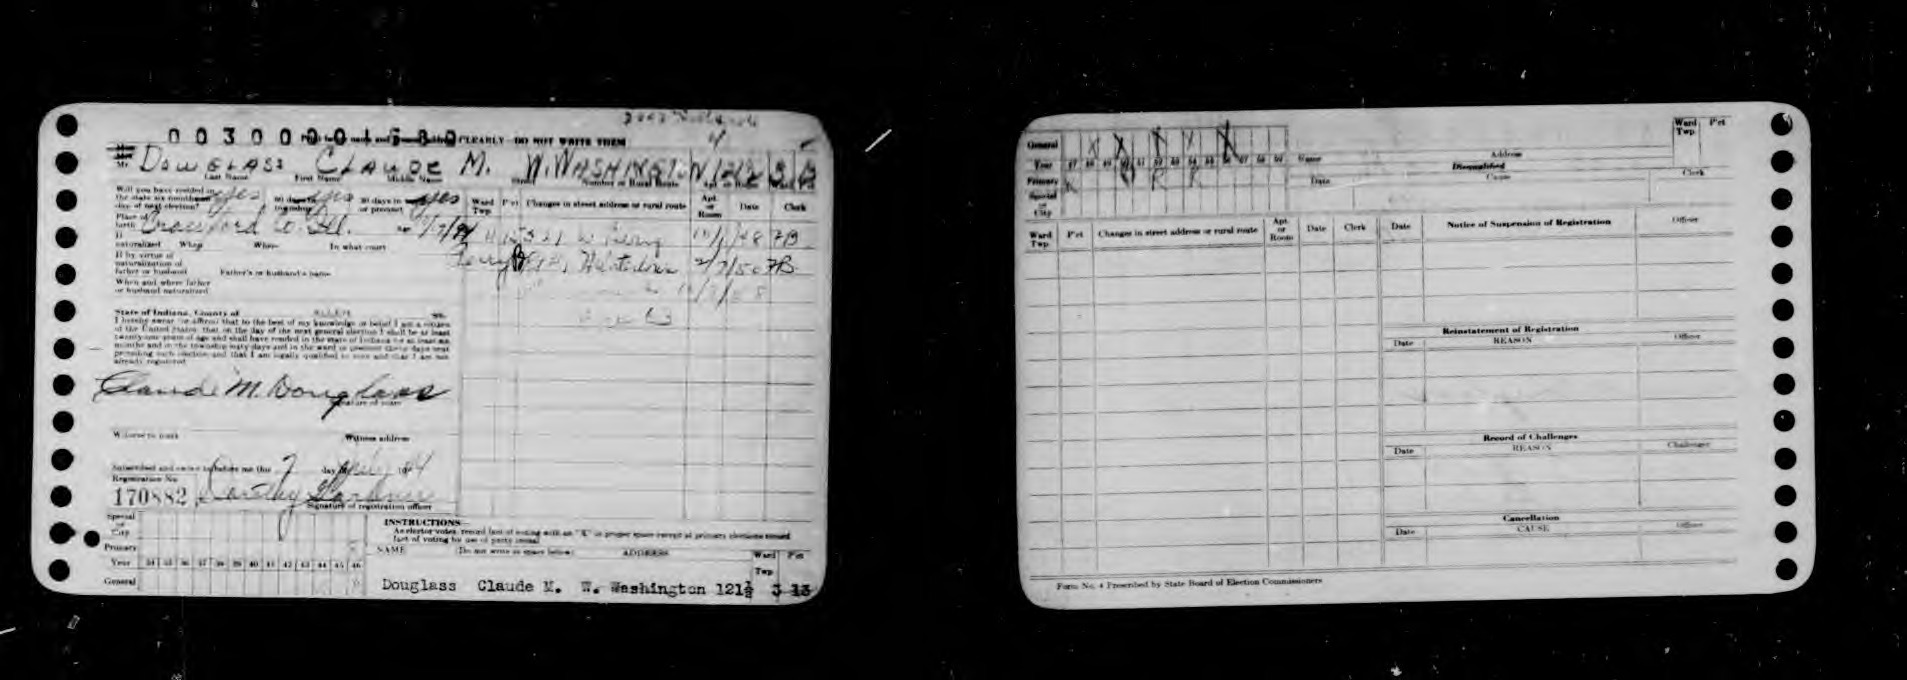 CLEARLY - DO NOT WRITE THEM
Mr. DOUGLASS CLAUDE M. W. WASHINGTON 121½ 3 13
Last Name First Name Middle Name Street Number or Rural Route Apt. or Room
Will you have resided in the state six months on day of next election? Yes 60 days in township Yes 30 days in or precinct Yes
Ward Twp. P'ct Changes in street address or rural route Apt. or Room Date Clerk
Place of birth Crawford Co. Ill.
521 W Berry 48 FB
If naturalized When Where In what court
2/7/50 FB
If by virtue of naturalization of father or husband Father's or husband's name
When and where father or husband naturalized
State of Indiana, County of ALLEN ss.
I hereby swear (or affirm) that to the best of my knowledge or belief I am a citizen
of the United States; that on the day of the next general election I shall be at least
twenty-one years of age and shall have resided in the state of Indiana for at least six
months and in the township sixty days and in the ward or precinct thirty days next
preceding such election and that I am legally qualified to vote and that I am not
already registered.
Claude M. Douglass
Signature of voter
Witness to mark Witness address
Subscribed and sworn to before me this 7 day
Registration No.
170882 Dorothy Gardner
Signature of registration officer
Special or City
INSTRUCTIONS
As elector votes, record fact of voting with an "X" in proper space except at primary elections record
fact of voting by use of party initial
Primary R
NAME (Do not write in space below) ADDRESS Ward Twp. P'ct
Year 34 35 36 37 38 39 40 41 42 43 44 45 46
General
Douglass Claude M. W. Washington 121½ 3 13
General X X X X X
Year 47 48 49 50 51 52 53 54 55 56 57 58 59
Name Address Ward Twp. P'ct
Primary R R R
Disqualified
Date Cause Clerk
Special or City
Ward Twp. P'ct Changes in street address or rural route Apt. or Room Date Clerk
Date Notice of Suspension of Registration Officer
Reinstatement of Registration
Date REASON Officer
Record of Challenges
Date REASON Challenger
Cancellation
Date CAUSE Officer
Form No. 4 Prescribed by State Board of Election Commissioners